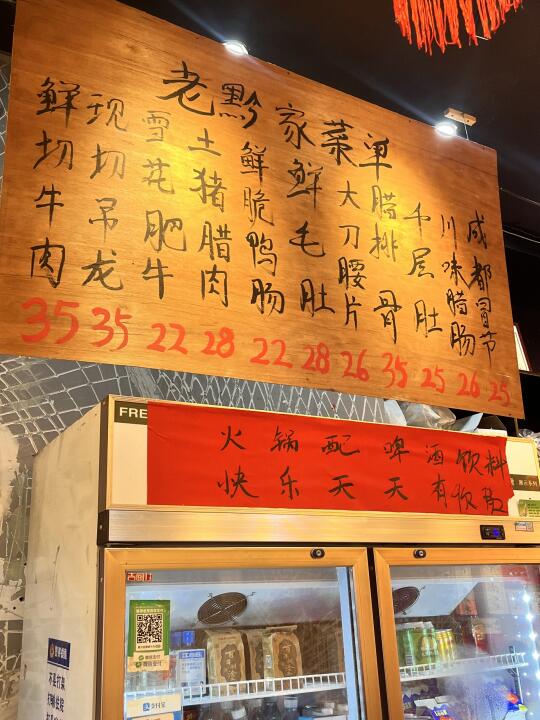 老黔家菜单
鲜切牛肉 35
现切吊龙 35
雪花肥牛 22
土猪腊肉 28
鲜脆鸭肠 22
鲜毛肚 28
大刀腰片 26
腊排骨 35
千层肚 25
川味腊肠 26
成都冒节 25
FRE
火锅配啤酒饮料
快乐天天有
微信支付
支付宝